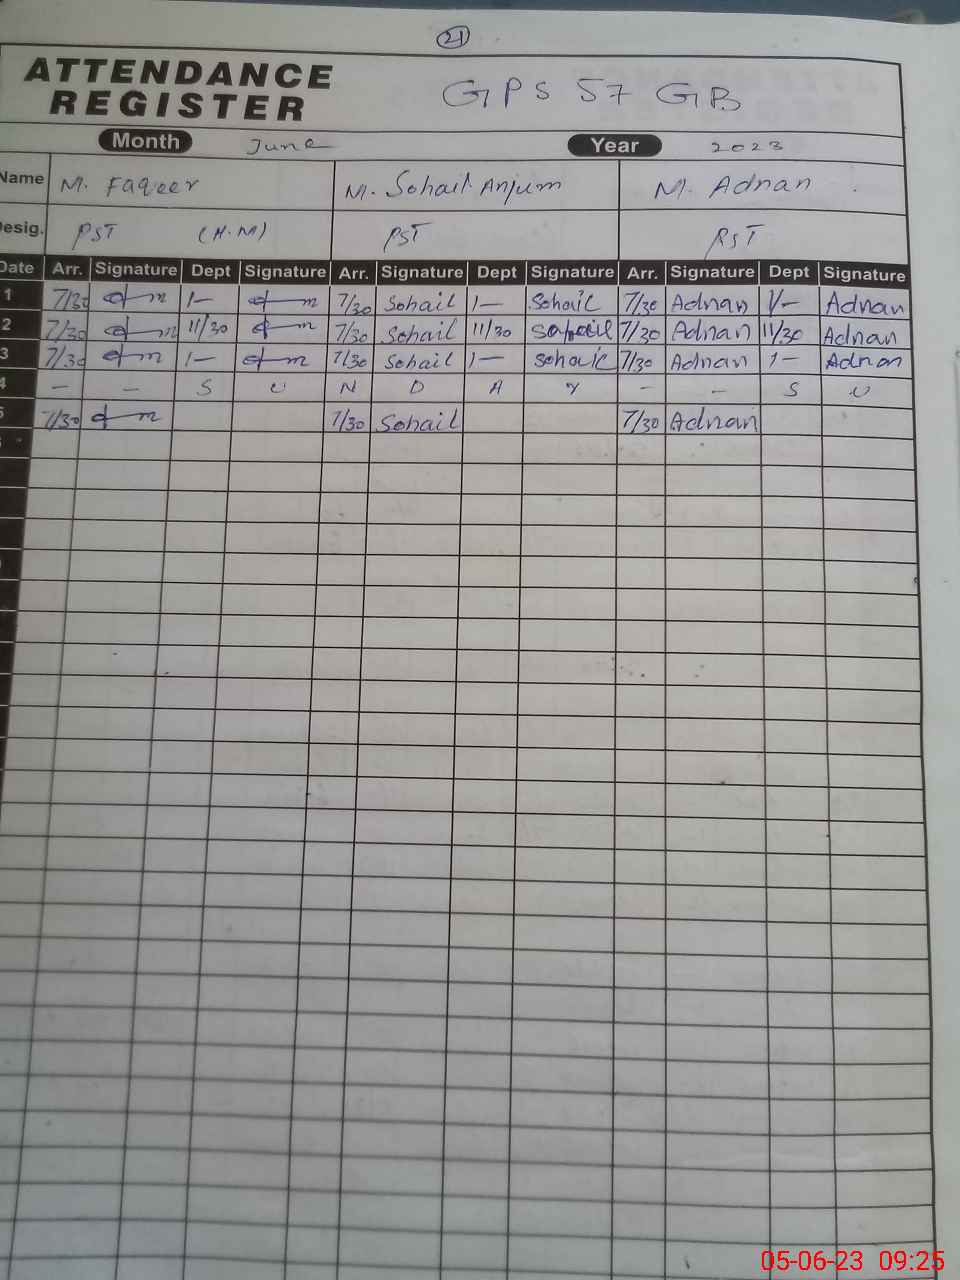 21
ATTENDANCE
REGISTER
GPS 57 GB
Month June Year 2023
Name M. Faqeer M. Sohail Anjum M. Adnan
Desig. PST (H.M) PST PST
Date Arr. Signature Dept Signature Arr. Signature Dept Signature Arr. Signature Dept Signature
1 7/30 1- 7/30 Sohail 1- Sohail 7/30 Adnan 1/- Adnan
2 7/30 11/30 7/30 Sohail 11/30 Sohail 7/30 Adnan 11/30 Adnan
3 7/30 1- 7/30 Sohail 1- Sohail 7/30 Adnan 1- Adnan
4 - - S U N D A Y - - S U
5 7/30 7/30 Sohail 7/30 Adnan
05-06-23 09:25